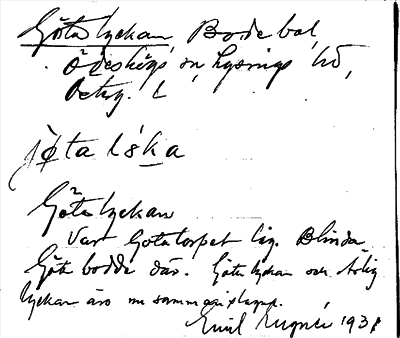 Göta lyckan, Bodebol,
Ödeshögs sn, Lysings hd,
Östrg. L
jø̀ta lỳka
Göta lyckan
Var Götatorpet låg. Blinda
Göta bodde där. Göta lyckan och
lyckan äro nu sammanslagna.
Emil 1931